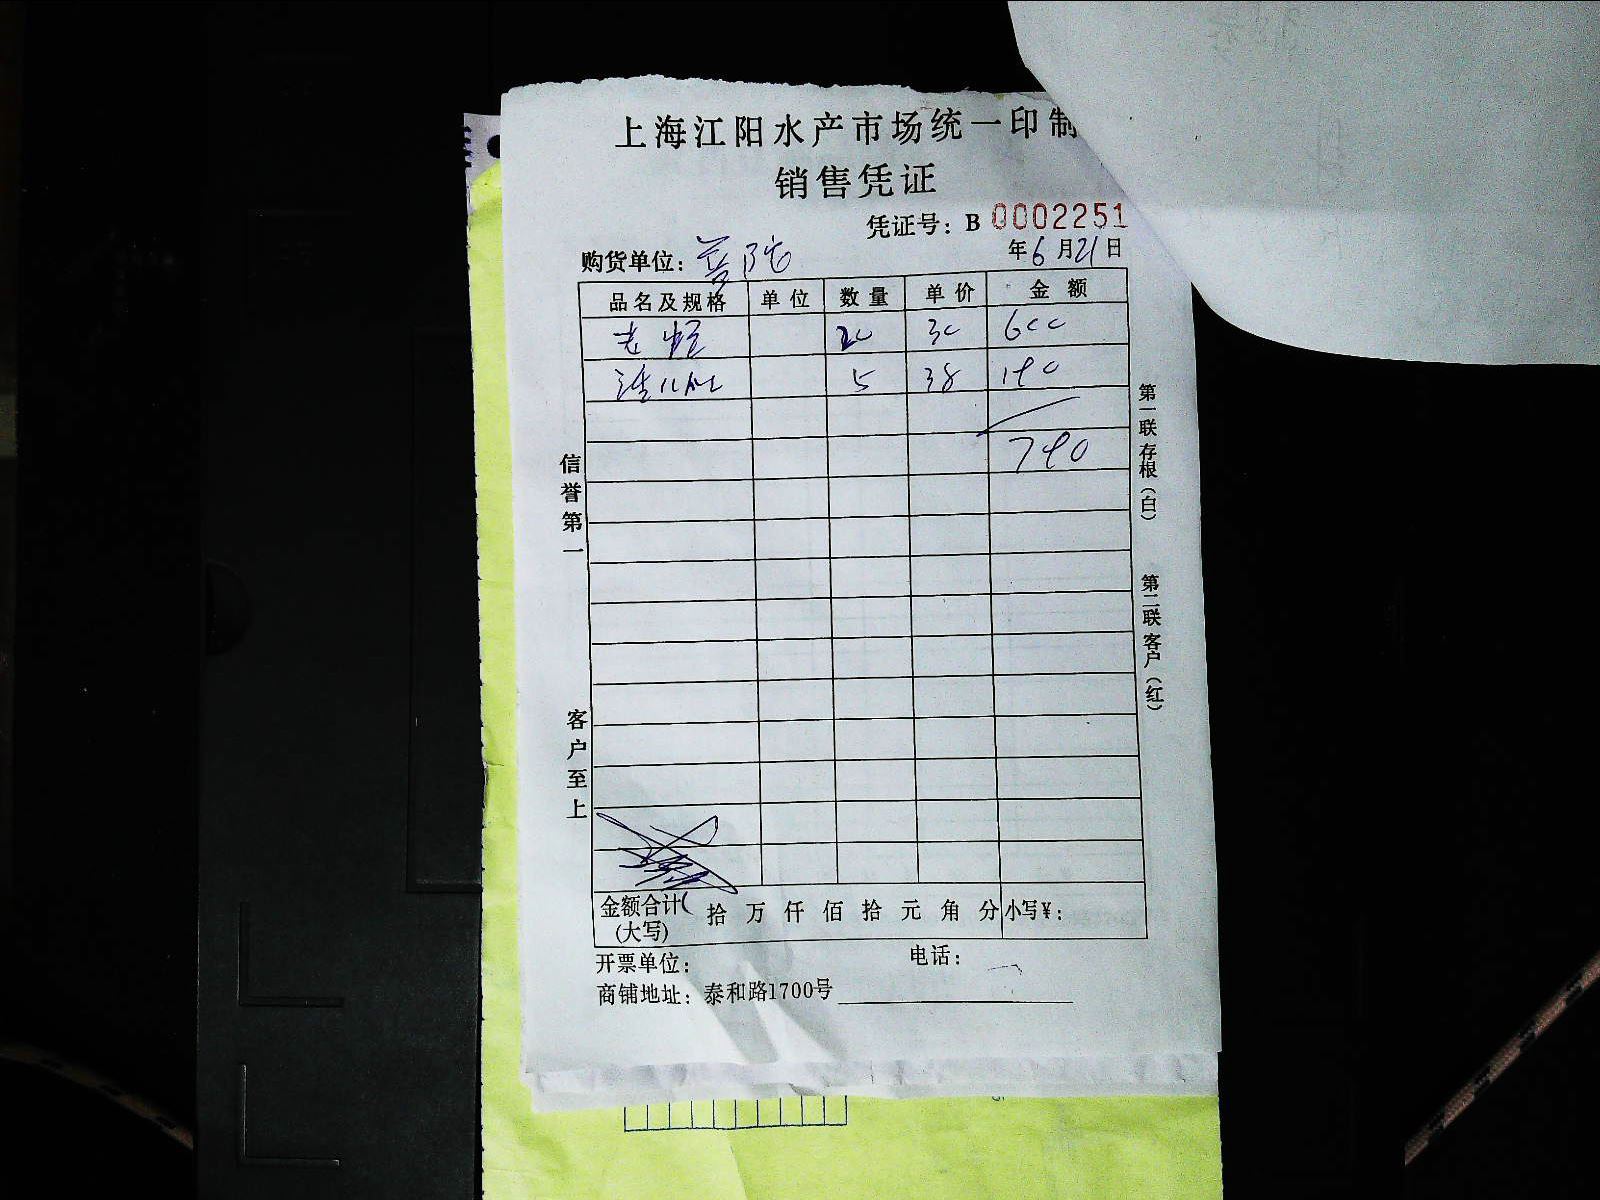 上海江阳水产市场统一印制
销售凭证
凭证号：B 0002251
购货单位：普陀 年6月21日
品名及规格 单位 数量 单价 金额
老 20 30 600
5 38 190
790
信誉第一
客户至上
第一联存根（白）
第二联客户（红）
金额合计(大写) 拾万仟佰拾元角分 小写¥：
开票单位： 电话：
商铺地址：泰和路1700号